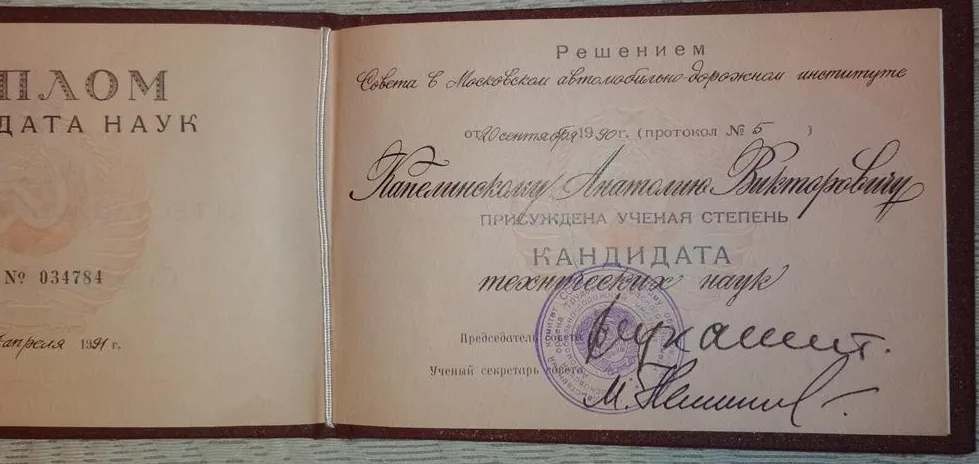 ПЛОМ
ДАТА НАУК
№ 034784
апреля 1991 г.
Решением
Совета в Московском автомобильно-дорожном институте
от 20 сентября 1990 г. (протокол № 5 )
Капелинскому Анатолию Викторовичу
ПРИСУЖДЕНА УЧЕНАЯ СТЕПЕНЬ
КАНДИДАТА
технических наук
Председатель совета
Ученый секретарь совета